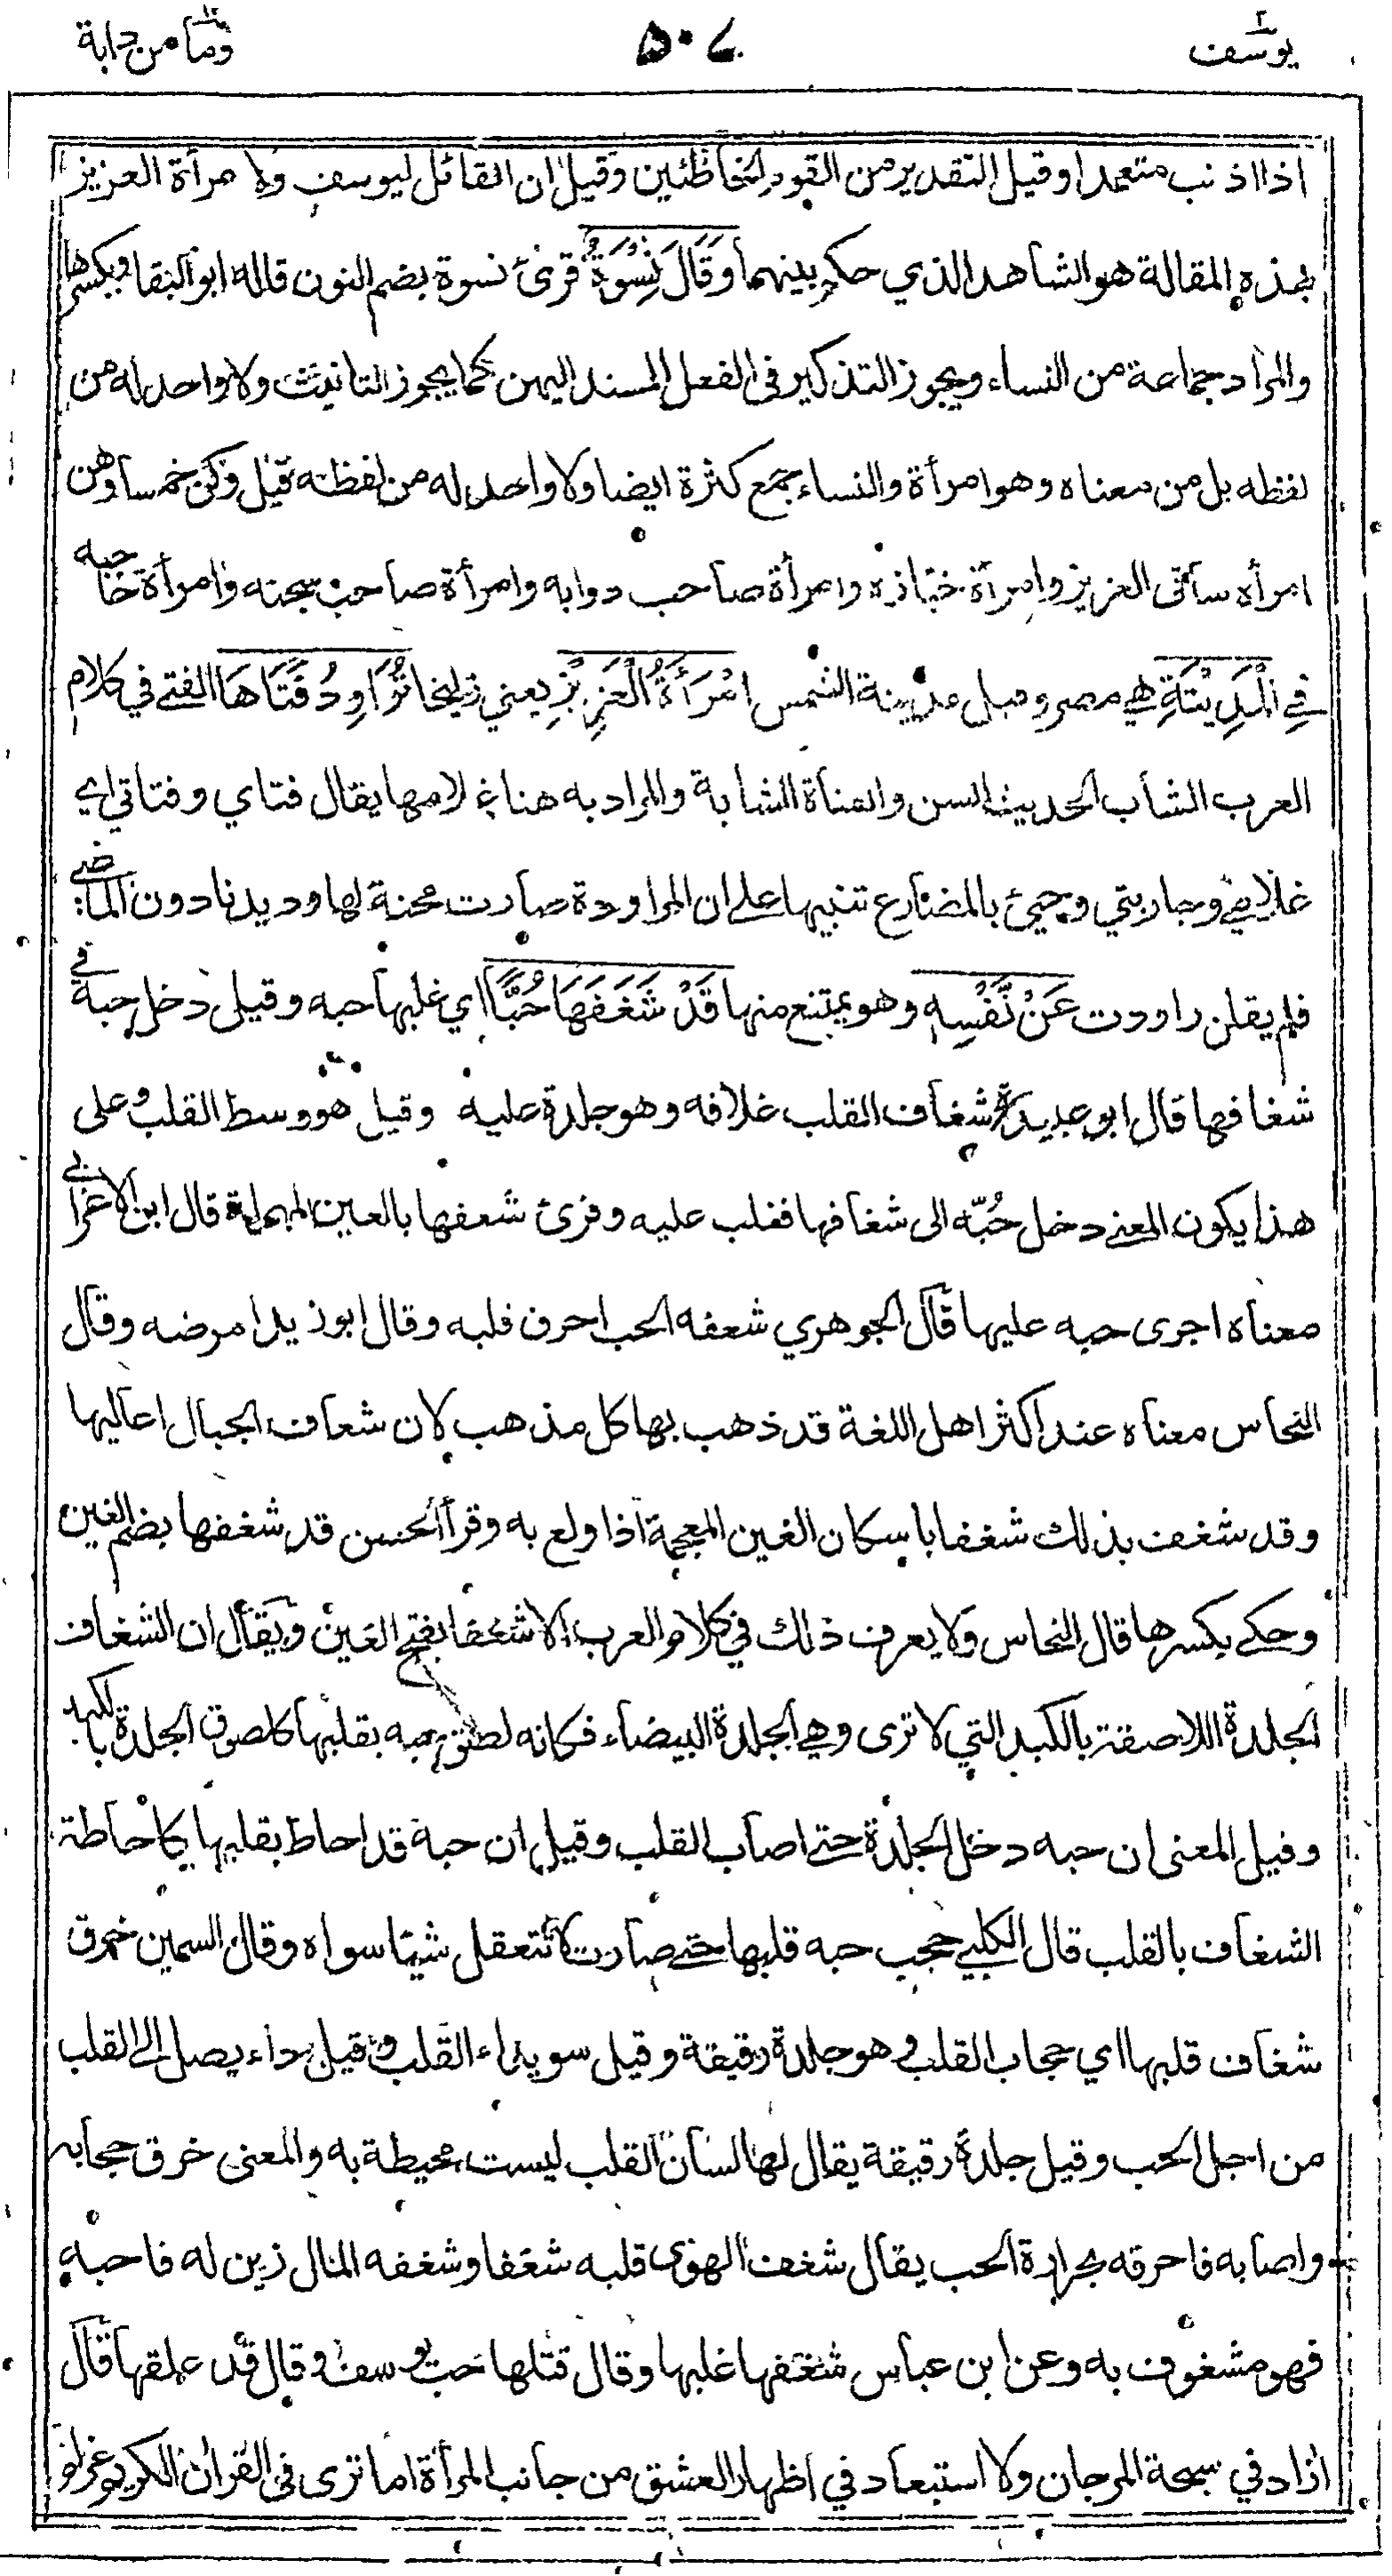 يوسف ٥٠٧ وما من دابة
اذا اذنب متعمدا وقيل التقدير من القوم الخاطئين وقيل ان القائل ليوسف ولامرأة العزيز
بهذه المقالة هو الشاهد الذي حكم بينهما وَقَالَ نِسْوَةٌ قرئ نسوة بضم النون قاله ابو البقا وبكسرها
والمراد جماعة من النساء ويجوز التذكير في الفعل المسند اليهن كما يجوز التانيث ولا واحد له من
لفظه بل من معناه وهو امرأة والنساء جمع كثرة ايضا ولا واحد له من لفظه قيل وكن خمسا وهن
امرأه ساقى العزيز وامرأة خبازه وامرأة صاحب دوابه وامرأة صاحب سجنه وامرأة حاجبه
فِي الْمَدِيْنَةِ هي مصر وقيل مدينة الشمس امْرَأَةُ الْعَزِيْزِ يعني زليخا تُرَاوِدُ فَتَاهَا الفتے في كلام
العرب الشاب الحديث السن والفتاة الشابة والمراد به هنا غلامها يقال فتاي وفتاتي اي
غلامي وجاريتي وجيئ بالمضارع تنبيها على ان المراودة صارت محنة لها وديدنا دون الماضے
فلم يقلن راودت عَنْ نَّفْسِهٖ وهو يمتنع منها قَدْ شَغَفَهَا حُبًّا اي غلبها حبه وقيل دخل حبه في
شغافها قال ابو عبيدة شغاف القلب غلافه وهو جلدة عليه وقيل هو وسط القلب وعلى
هذا يكون المعنے دخل حُبّه الى شغافها فغلب عليه وقرئ شعفها بالعين المهملة قال ابن الاعرابي
معناه اجرى حبه عليها قال الجوهري شعفه الحب احرق قلبه وقال ابو زيد امرضه وقال
النحاس معناه عند اكثر اهل اللغة قد ذهب بها كل مذهب لان شعاف الجبال اعاليها
وقد شغف بذلك شغفا باسكان الغين المعجمة اذا ولع به وقرأ الحسن قد شغفها بضم الغين
وحكے بكسرها قال النحاس ولا يعرف ذلك في كلام العرب الا شغفا بفتح الغين ويقال ان الشغاف
الجلدة اللاصقة بالكبد التي لا ترى وهي الجلدة البيضاء فكانه لصق حبه بقلبها كلصوق الجلدة بالكبد
وقيل المعنى ان حبه دخل الجلدة حتے اصاب القلب وقيل ان حبه قد احاط بقلبها كاحاطة
الشغاف بالقلب قال الكلبي حجب حبه قلبها حتے صارت لا تعقل شيئا سواه وقال السمين خرق
شغاف قلبها اي حجاب القلب و هو جلدة رقيقة وقيل سويداء القلب وقيل داء يصل الى القلب
من اجل الحب وقيل جلدة رقيقة يقال لها لسان القلب ليست محيطة به والمعنى خرق حجابه
واصابه فاحرقه بحرارة الحب يقال شغف الهوى قلبه شغفا وشغفه المال زين له فاحبه
فهو مشغوف به وعن ابن عباس شغفها غلبها وقال قتلها حب يوسف وقال قد علقها قال
ازاد في سبحة المرجان ولا استبعاد في اظهار العشق من جانب المرأة اما ترى في القران الكريم غرام